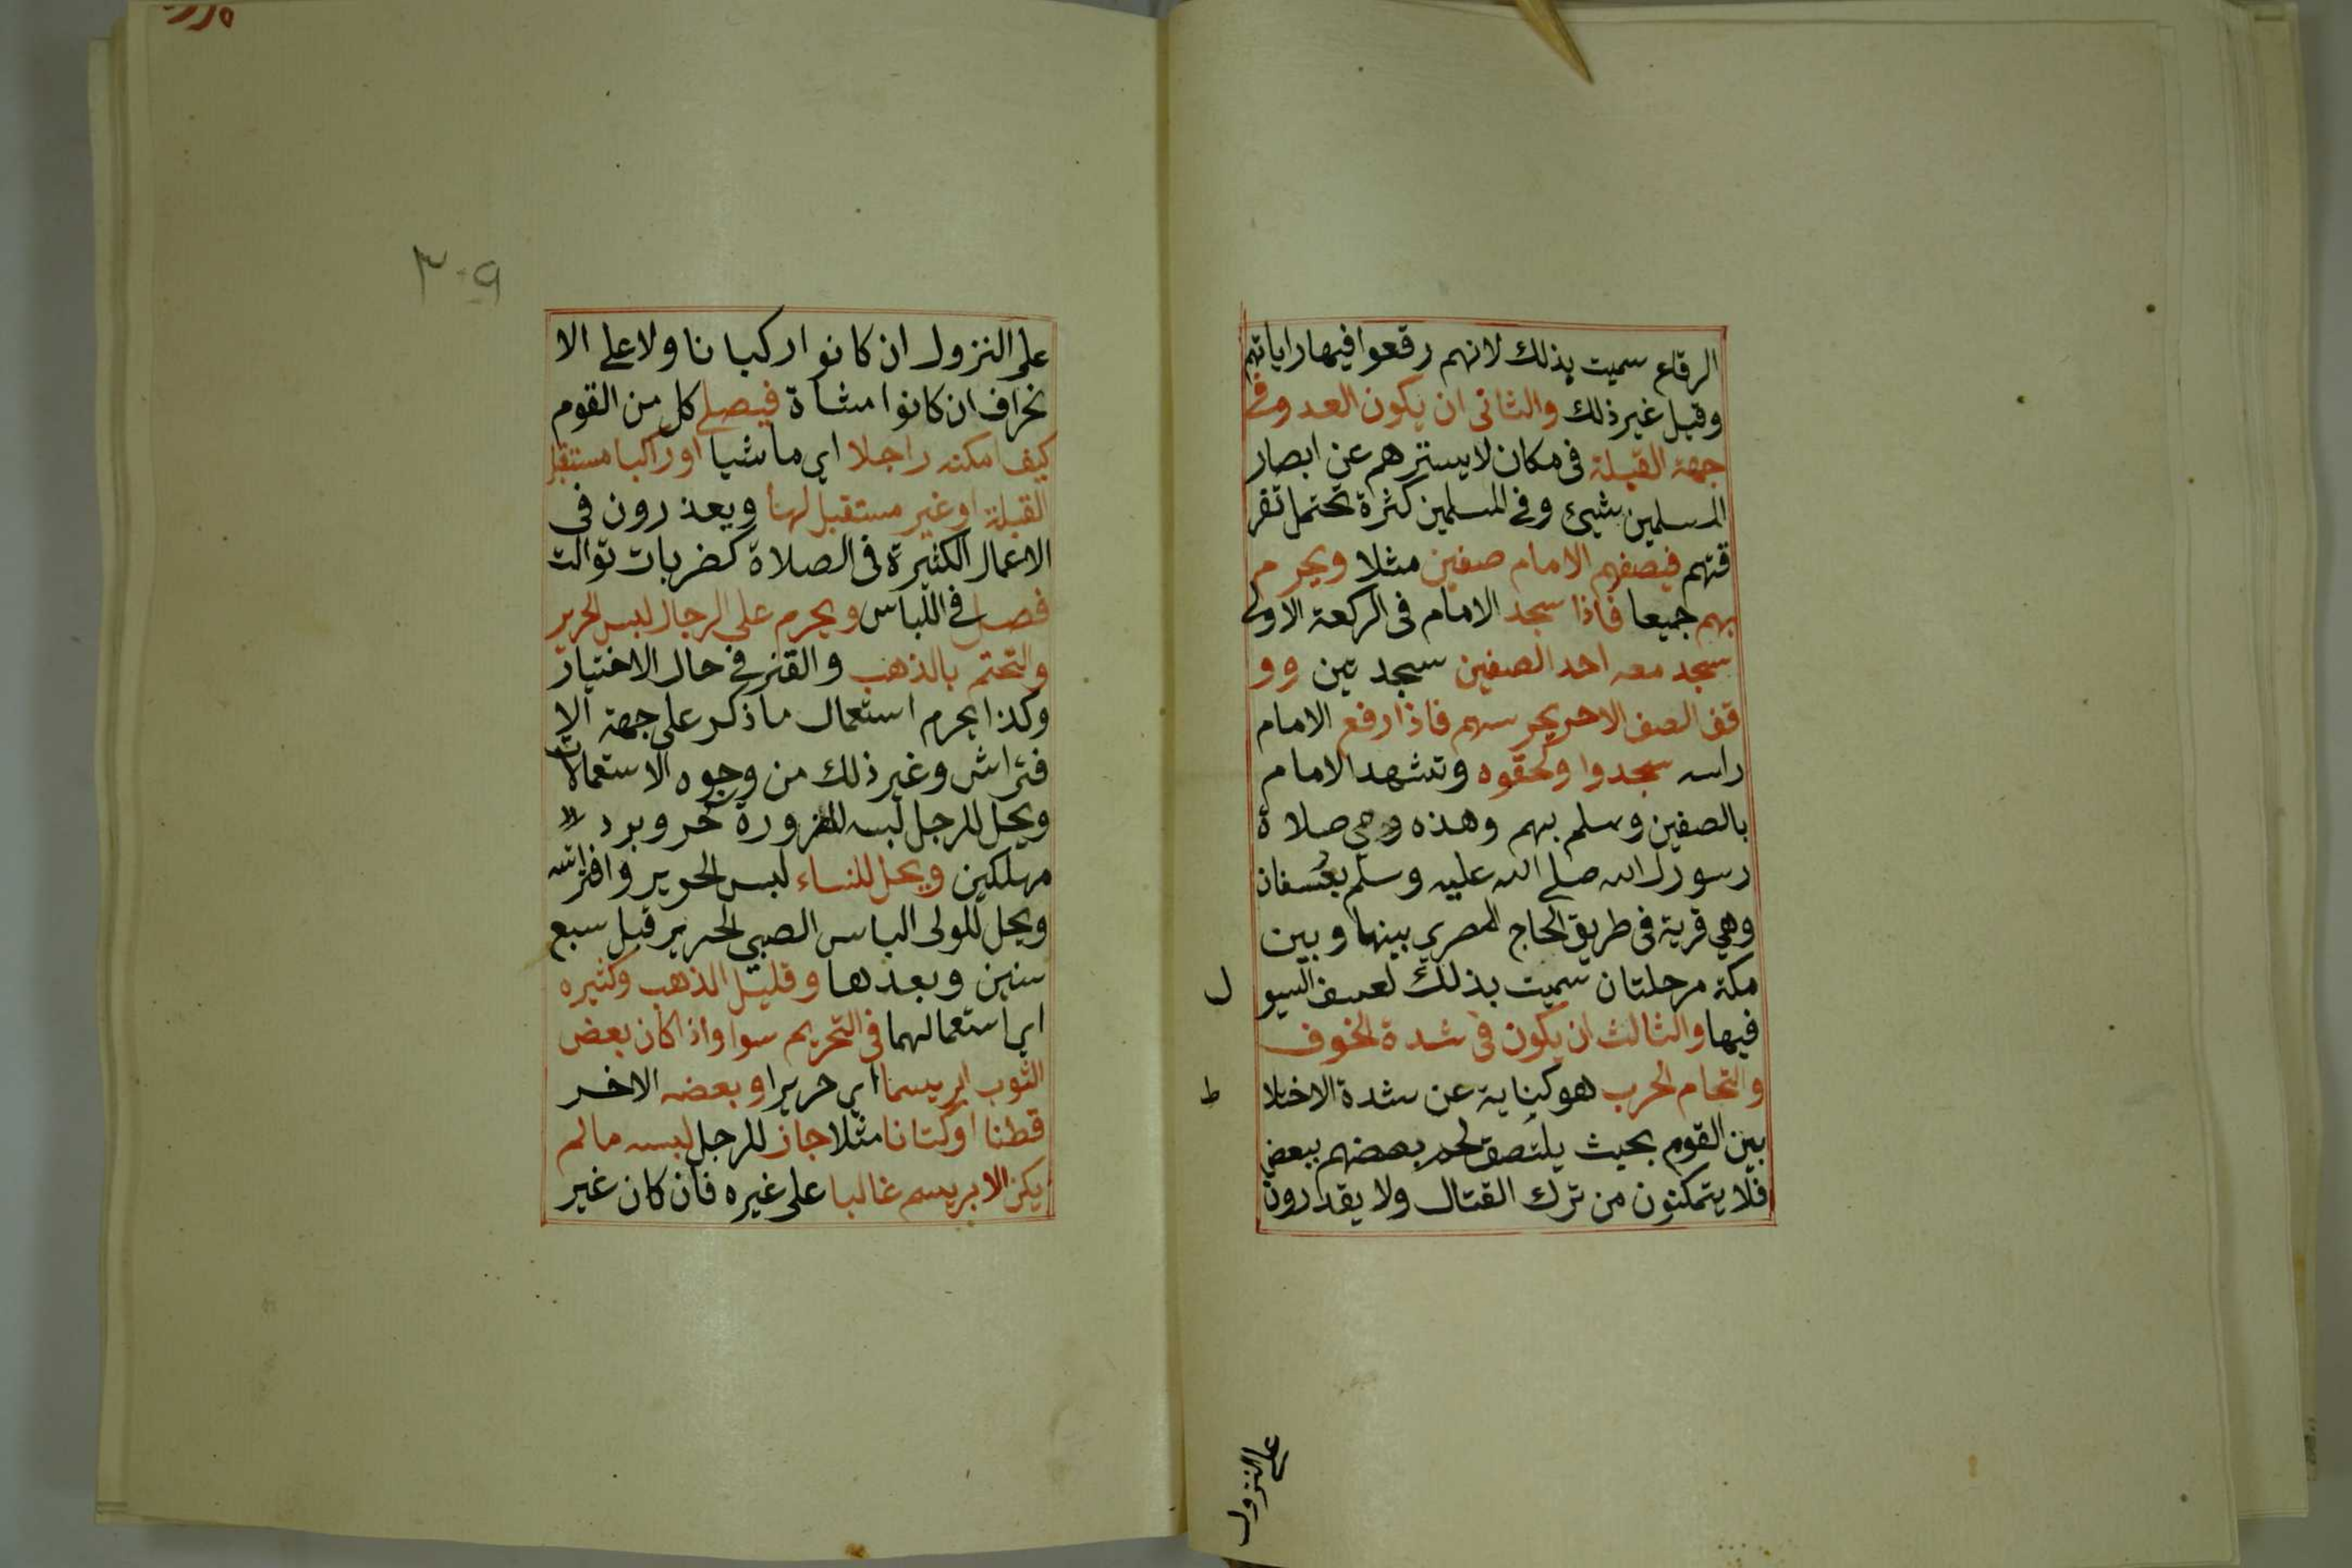 الرقاع سميت بذلك لانهم رقعوا فيها راياتهم
وقيل غير ذلك والثانى ان يكون العدو فى
جهة القبلة فى مكان لا يسترهم عن ابصار
المسلمين شيئ وفى المسلمين كثرة تحتمل تفر
قتهم فيصفهم الامام صفين مثلا ويحرم
بهم جميعا فاذا سجد الامام فى الركعة الاولى
سجد معه احد الصفين سجد تين وو
قف الصف الاخر يحرسهم فاذا رفع الامام
راسه سجدوا ولحقوه وتشهد الامام
بالصفين وسلم بهم وهذه وهي صلاة
رسول الله صلى الله عليه وسلم بعُسفان
وهي قرية فى طريق الحاج المصري بينها وبين
مكة مرحلتان سميت بذلك لعسف السيو
ل
فيها والثالث ان يكون فى شدة الخوف
والتحام الحرب هو كناية عن شدة الاختلا
ط
بين القوم بحيث يلتصق لحم بعضهم ببعض
فلا يتمكنون من ترك القتال ولا يقدرون
على النزول
٣٠٩
على النزول ان كانوا ركبانا ولا على الا
نحراف ان كانوا مشاة فيصلى كل من القوم
كيف امكنه راجلا اي ماشيا او راكبا مستقبل
القبلة او غير مستقبل لها ويعذرون فى
الاعمال الكثيرة فى الصلاة كضربات توالت
فصل فى اللباس ويحرم على الرجال لبس الحرير
والتختم بالذهب والقز فى حال الاختيار
وكذا يحرم استعمال ما ذكر على جهة الا
فتراش وغير ذلك من وجوه الاستعمالات
ويحل للرجل لبسه للضرورة كحر وبرد
مهلكين ويحل للنساء لبس الحرير وافتراشه
ويحل للولى الباس الصبي الحرير قبل سبع
سنين وبعدها وقليل الذهب وكثيره
اي استعمالهما فى التحريم سوا واذا كان بعض
الثوب ابريسما اي حريرا وبعضه الاخر
قطنا او كتانا مثلا جاز للرجل لبسه مالم
يكن الابريسم غالبا على غيره فان كان غير